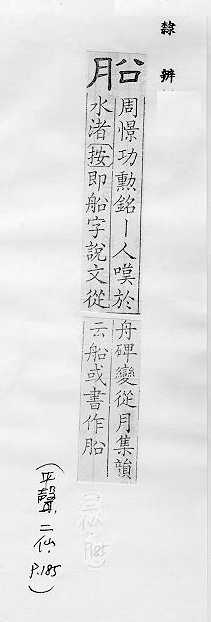 隸辨
周憬功勳銘｜人嘆於
水渚按即船字說文從
舟碑變從月集韻
云船或書作船
(平聲,二仙. P.185)